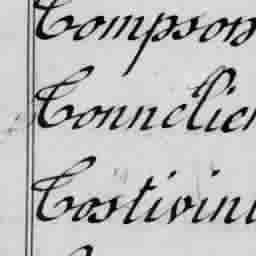 Tompson
Tonnelier
Tostivint